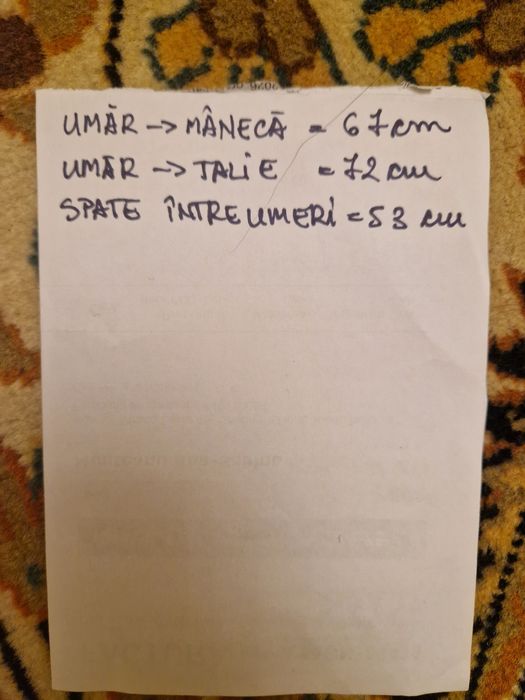 UMĂR → MÂNECĂ = 67 cm
UMĂR → TALIE = 72 cm
SPATE ÎNTRE UMERI = 53 cm